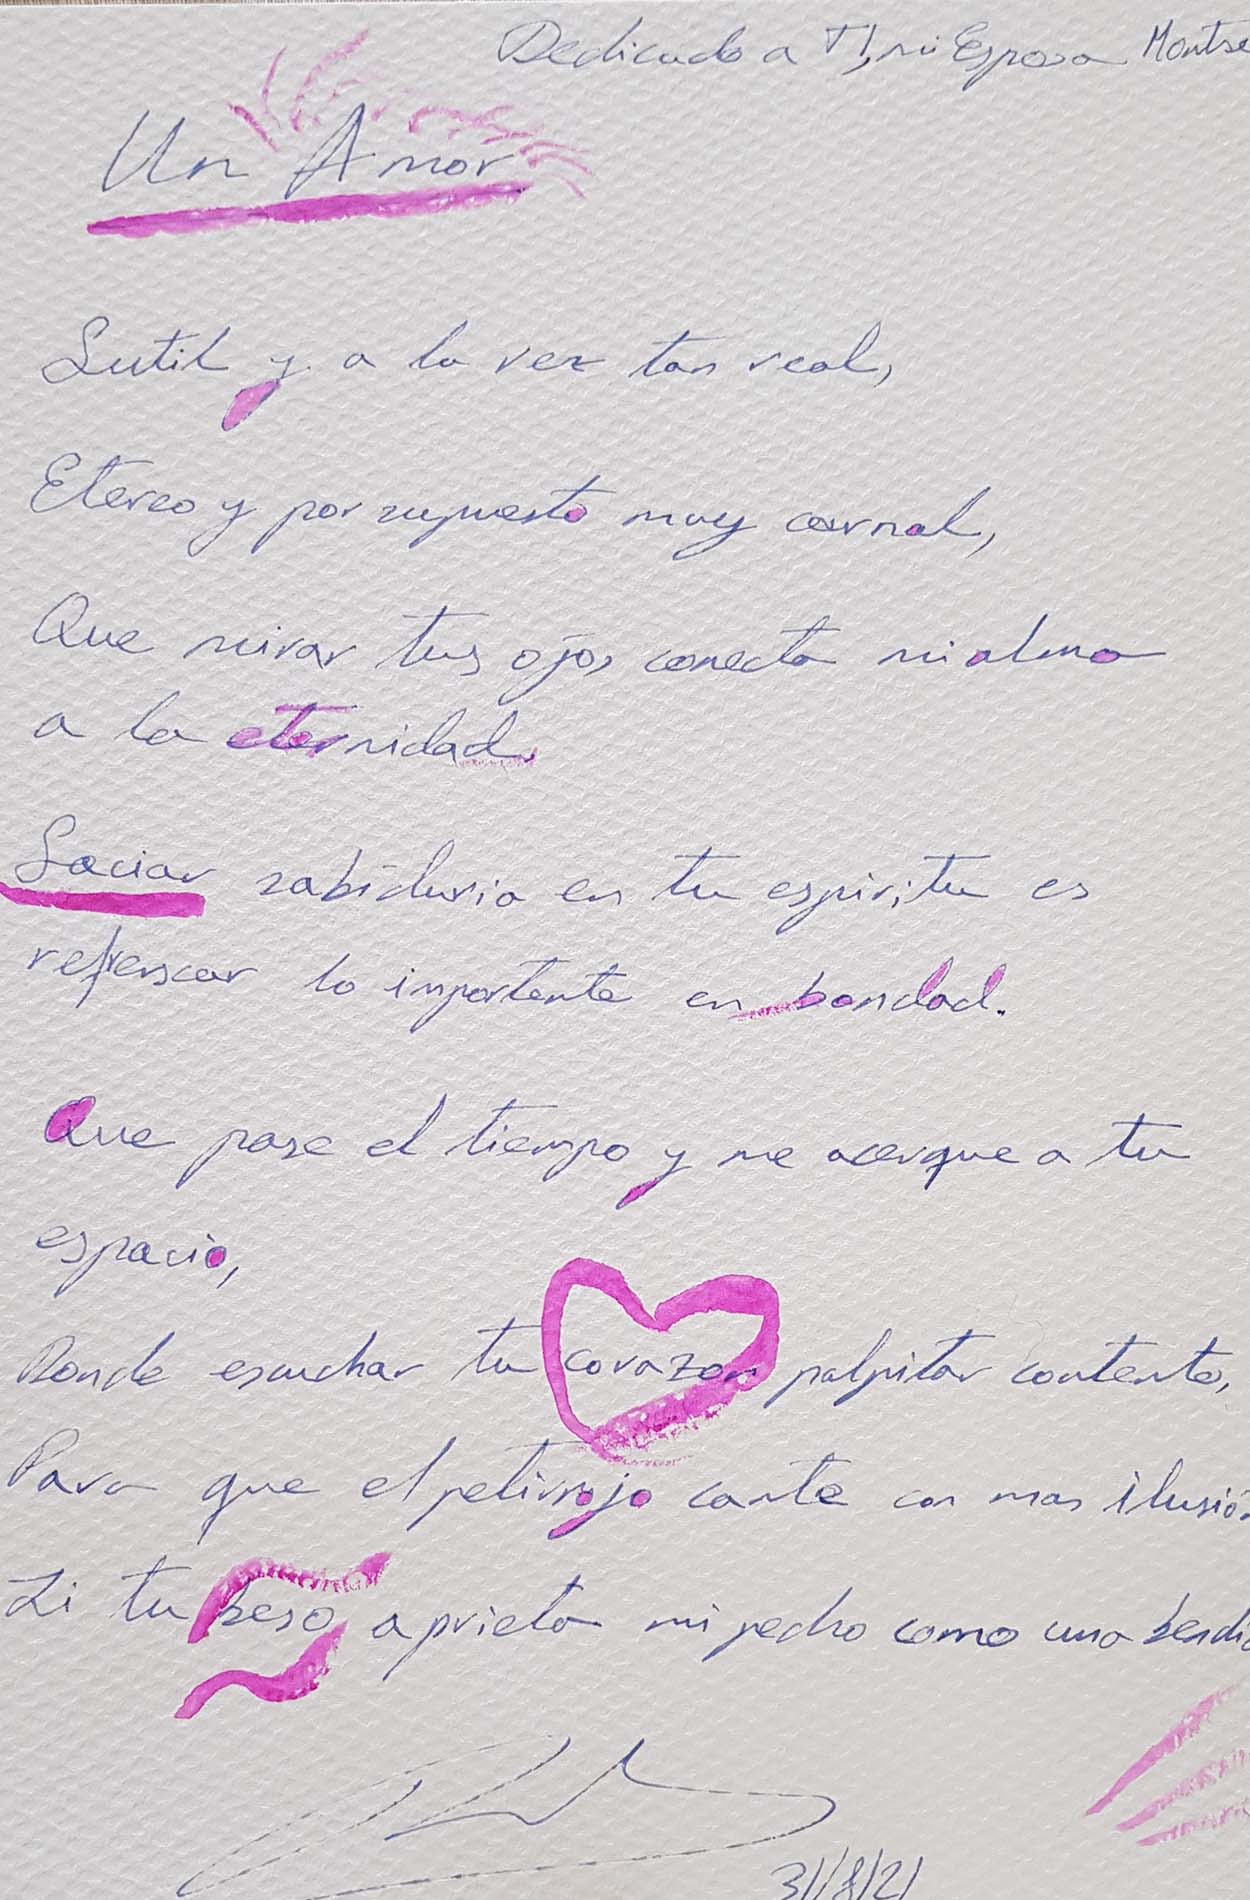 Dedicado a TI, mi Esposa Montse
Un Amor
Sutil y a la vez tan real,
Etereo y por supuesto muy carnal,
Que mirar tus ojos conecta mi alma
a la eternidad.
Saciar sabiduria en tu espiritu es
refrescar lo importante en bondad.
Que pase el tiempo y me acerque a tu
espacio,
Donde escuchar tu corazon palpitar contento,
Para que el petirrojo cante con mas ilusión
Si tu beso aprieta mi pecho como una bendic
31/8/21